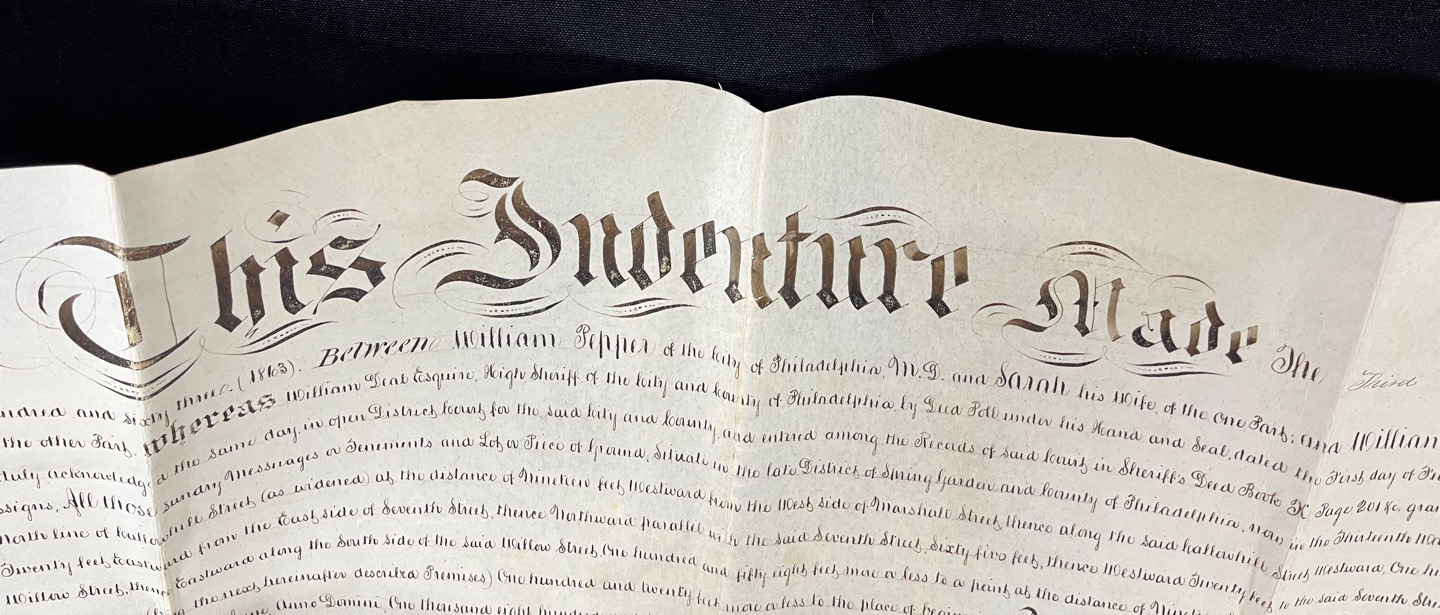 This Indenture Made The Third
ndred and sixty three. (1863). Between William Pepper of the City of Philadelphia, M.D. and Sarah his Wife, of the One Part; and William
the other Part. Whereas William Deal Esquire, High Sheriff of the City and County of Philadelphia, by Deed Poll under his Hand and Seal, dated the First day of
the same day, in open District Court for the said City and County, and entered among the Records of said Court in Sheriff's Deed Book Page 201 &c. gran
ssigns, All those sundry Messuages or Tenements and Lots or Piece of Ground, Situate in the late District of Spring Garden and County of Philadelphia, now in the Thirteenth
north line of Callowhill Street (as widened) at the distance of Nineteen feet Westward from the West side of Marshall Street, thence along the said Callowhill Street Westward, One
Twenty feet Eastward from the East side of Seventh Street, thence Northward parallel with the said Seventh Street, Sixty five feet, thence Westward Twenty feet to the said Seventh
Willow Street, thence Eastward along the South side of the said Willow Street, One hundred and fifty eight feet more or less to a point at the distance of
the next hereinafter described Premises) One hundred and twenty feet more or less to the place of
Anno Domini, One thousand eight